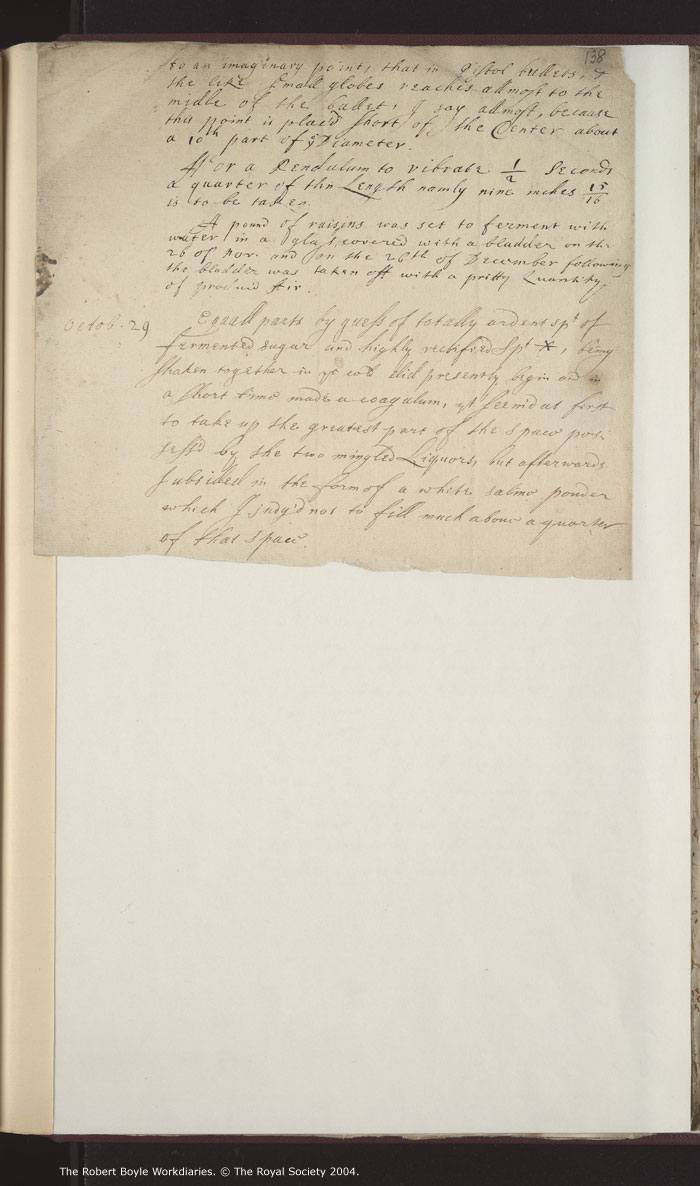 138
to an imaginary point, that in Pistol bullets, &
the like Small globes reaches allmost to the
midle of the bullet; I say allmost, because
this point is placed short of the Center about
a 10th part of ye Diameter.
For a Pendulum to vibrate 1/2 Seconds
a quarter of the Length namly nine inches 15/16
is to be taken.
A pound of raisins was set to ferment with
water in a glass covered with a bladder on the
26 of Nov. and on the 26th of December following
the bladder was taken off with a pritty Quantity
of produc'd Air.
Octob. 29
Equall parts by guess of totally ardent spt of
fermented sugar and highly rectified Spt *, being
shaken together in ye cold did presently begin and in
a short time made a coagulum, yt seem'd at first
to take up the greatest part of the space pos-
sess'd by the two mingled Liquors, but afterwards
subsided in the form of a white saline pouder
which I judg'd not to fill much above a quarter
of that space.
The Robert Boyle Workdiaries. © The Royal Society 2004.